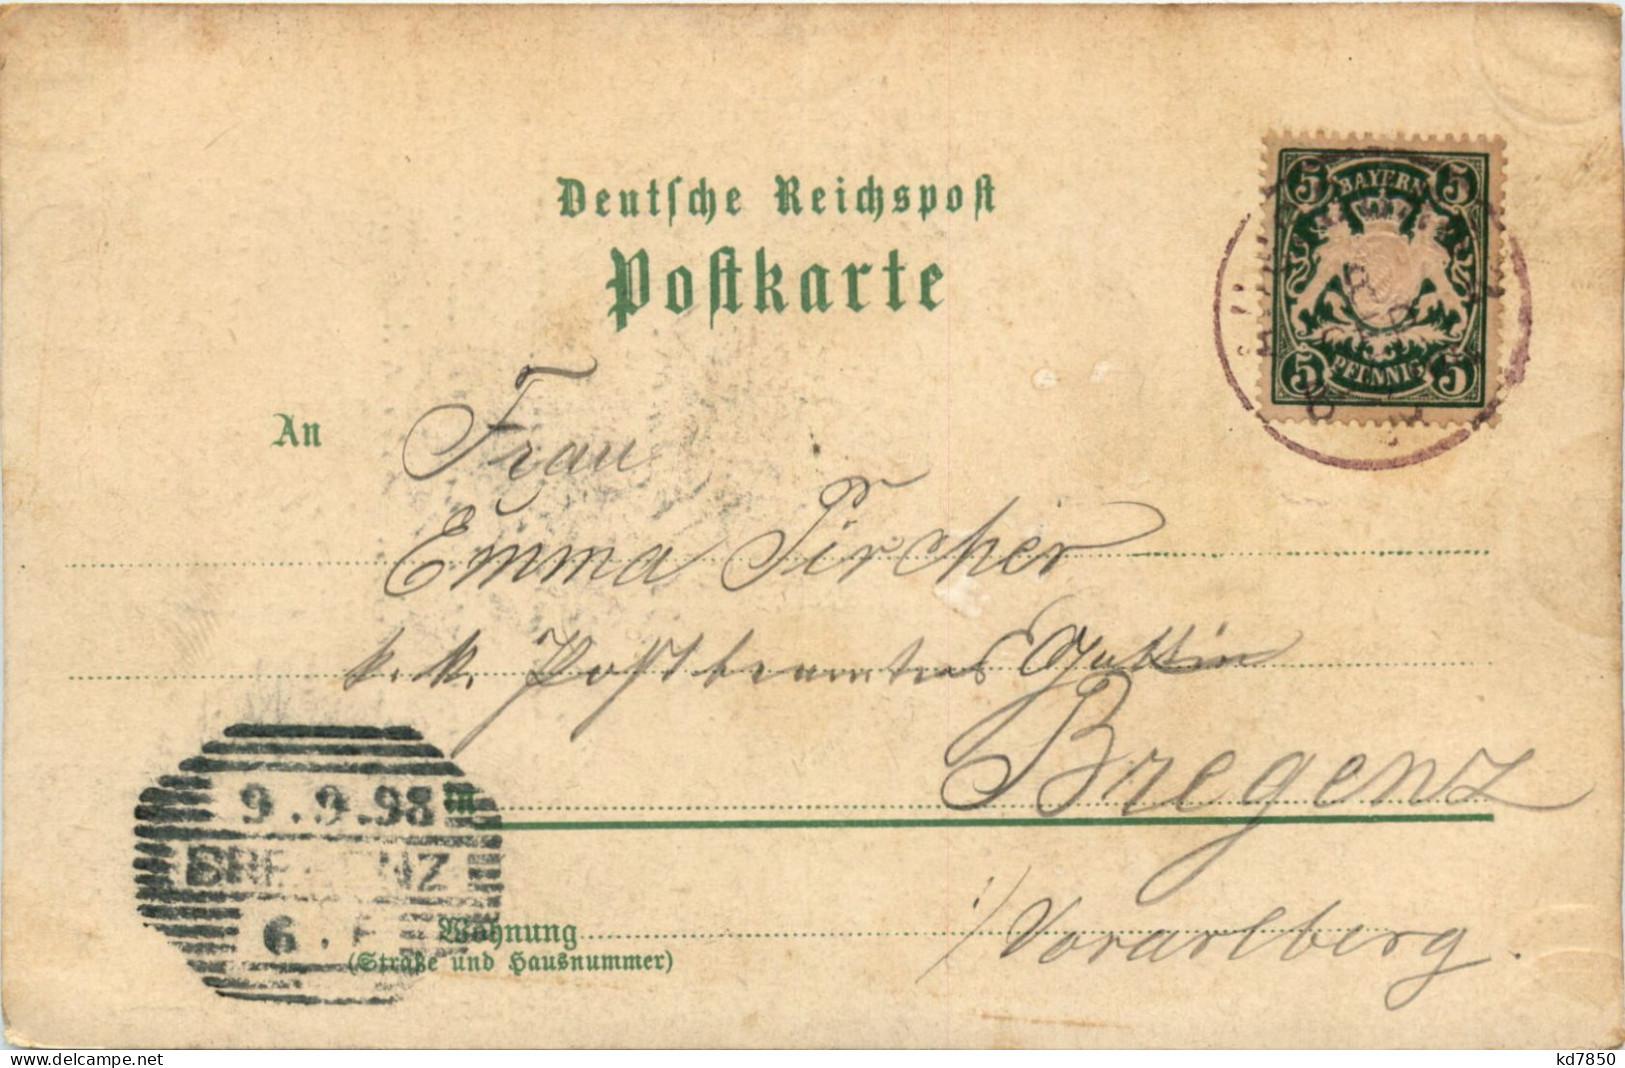 Deutsche Reichspost
Postkarte
5 BAYERN 5
5 PFENNIG 5
An
Frau
Emma Pircher
k. k. Postbeamtens Gattin
in Bregenz
9.9.98
BREGENZ
6
i/ Vorarlberg.
Wohnung
(Straße und Hausnummer)
www.delcampe.net
kd7850